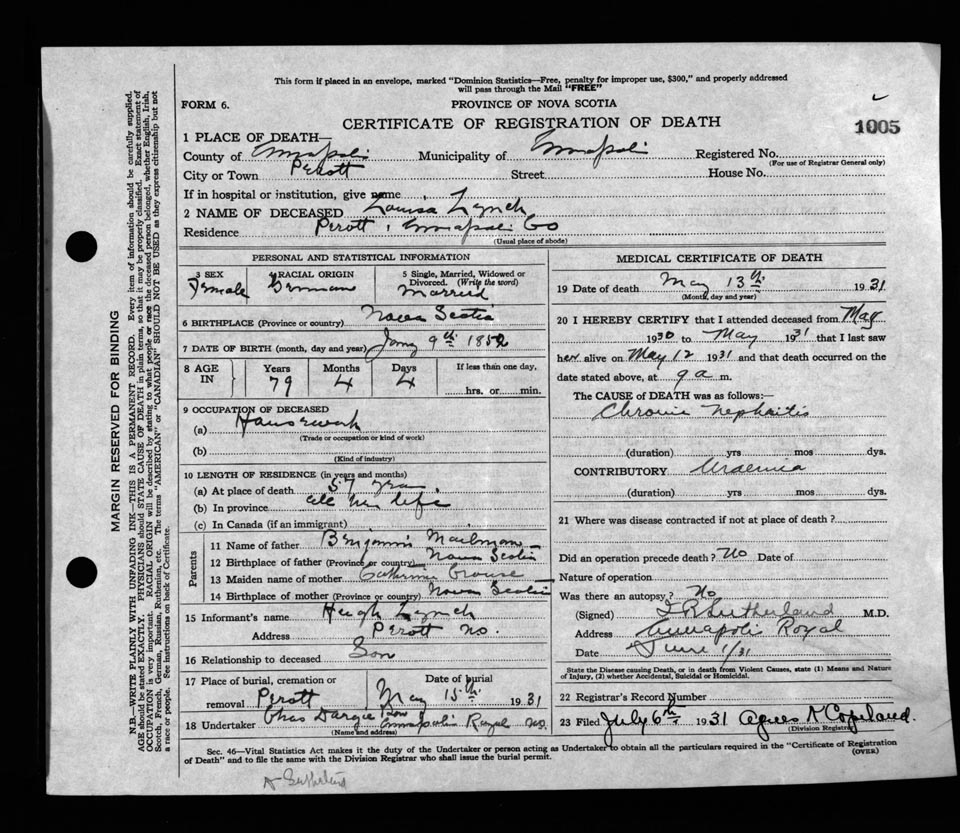 This form if placed in an envelope, marked "Dominion Statistics—Free, penalty for improper use, $300," and properly addressed
will pass through the Mail "FREE"
FORM 6.
PROVINCE OF NOVA SCOTIA
CERTIFICATE OF REGISTRATION OF DEATH
1005
1 PLACE OF DEATH—
County of Annapolis Municipality of Annapolis Registered No.
(For use of Registrar General only)
City or Town Perott Street House No.
If in hospital or institution, give name
2 NAME OF DECEASED Louisa Lynch
Residence Perott, Annapolis Co
(Usual place of abode)
PERSONAL AND STATISTICAL INFORMATION
3 SEX 4 RACIAL ORIGIN 5 Single, Married, Widowed or
Divorced. (Write the word)
Female German Married
6 BIRTHPLACE (Province or country) Nova Scotia
7 DATE OF BIRTH (month, day and year) Jany 9th 1852
8 AGE IN Years Months Days If less than one day,
79 4 4 hrs. or min.
9 OCCUPATION OF DECEASED
(a) Housework
(Trade or occupation or kind of work)
(b)
(Kind of industry)
10 LENGTH OF RESIDENCE (in years and months)
(a) At place of death 57 yrs
(b) In province all her life
(c) In Canada (if an immigrant)
Parents
11 Name of father Benjamin Mailman
12 Birthplace of father (Province or country) Nova Scotia
13 Maiden name of mother Catherine Crouse
14 Birthplace of mother (Province or country) Nova Scotia
15 Informant's name Hugh Lynch
Address Perott NS.
16 Relationship to deceased Son
17 Place of burial, cremation or Date of burial
removal Perott May 15th 1931
18 Undertaker Chas Dargie & Son Annapolis Royal NS.
(Name and address)
MEDICAL CERTIFICATE OF DEATH
19 Date of death May 13th 1931
(Month, day and year)
20 I HEREBY CERTIFY that I attended deceased from May
1930 to May 1931 that I last saw
her alive on May 12 1931 and that death occurred on the
date stated above, at 9 a m.
The CAUSE of DEATH was as follows:—
Chronic Nephritis
(duration) yrs mos dys.
CONTRIBUTORY Uraemia
(duration) yrs mos dys.
21 Where was disease contracted if not at place of death?
Did an operation precede death? No Date of
Nature of operation
Was there an autopsy? No
(Signed) Sutherland M.D.
Address Annapolis Royal
Date June 1/31
State the Disease causing Death, or in death from Violent Causes, state (1) Means and Nature
of Injury, (2) whether Accidental, Suicidal or Homicidal.
22 Registrar's Record Number
23 Filed July 6th 1931 Agnes N Copeland.
(Division Registrar)
Sec. 46—Vital Statistics Act makes it the duty of the Undertaker or person acting as Undertaker to obtain all the particulars required in the "Certificate of Registration
of Death" and to file the same with the Division Registrar who shall issue the burial permit.
(OVER)
MARGIN RESERVED FOR BINDING
N.B.—WRITE PLAINLY WITH UNFADING INK—THIS IS A PERMANENT RECORD. Every item of information should be carefully supplied.
AGE should be stated EXACTLY. PHYSICIANS should STATE CAUSE OF DEATH in plain terms, so that it may be properly classified. Exact statement of
OCCUPATION is very important. RACIAL ORIGIN will be described by stating to what people or race the deceased person belonged, whether English, Irish,
Scotch, French, German, Russian, Ruthenian, etc. The terms "AMERICAN" or "CANADIAN" SHOULD NOT BE USED as they express citizenship but not
a race or people. See instructions on back of Certificate.